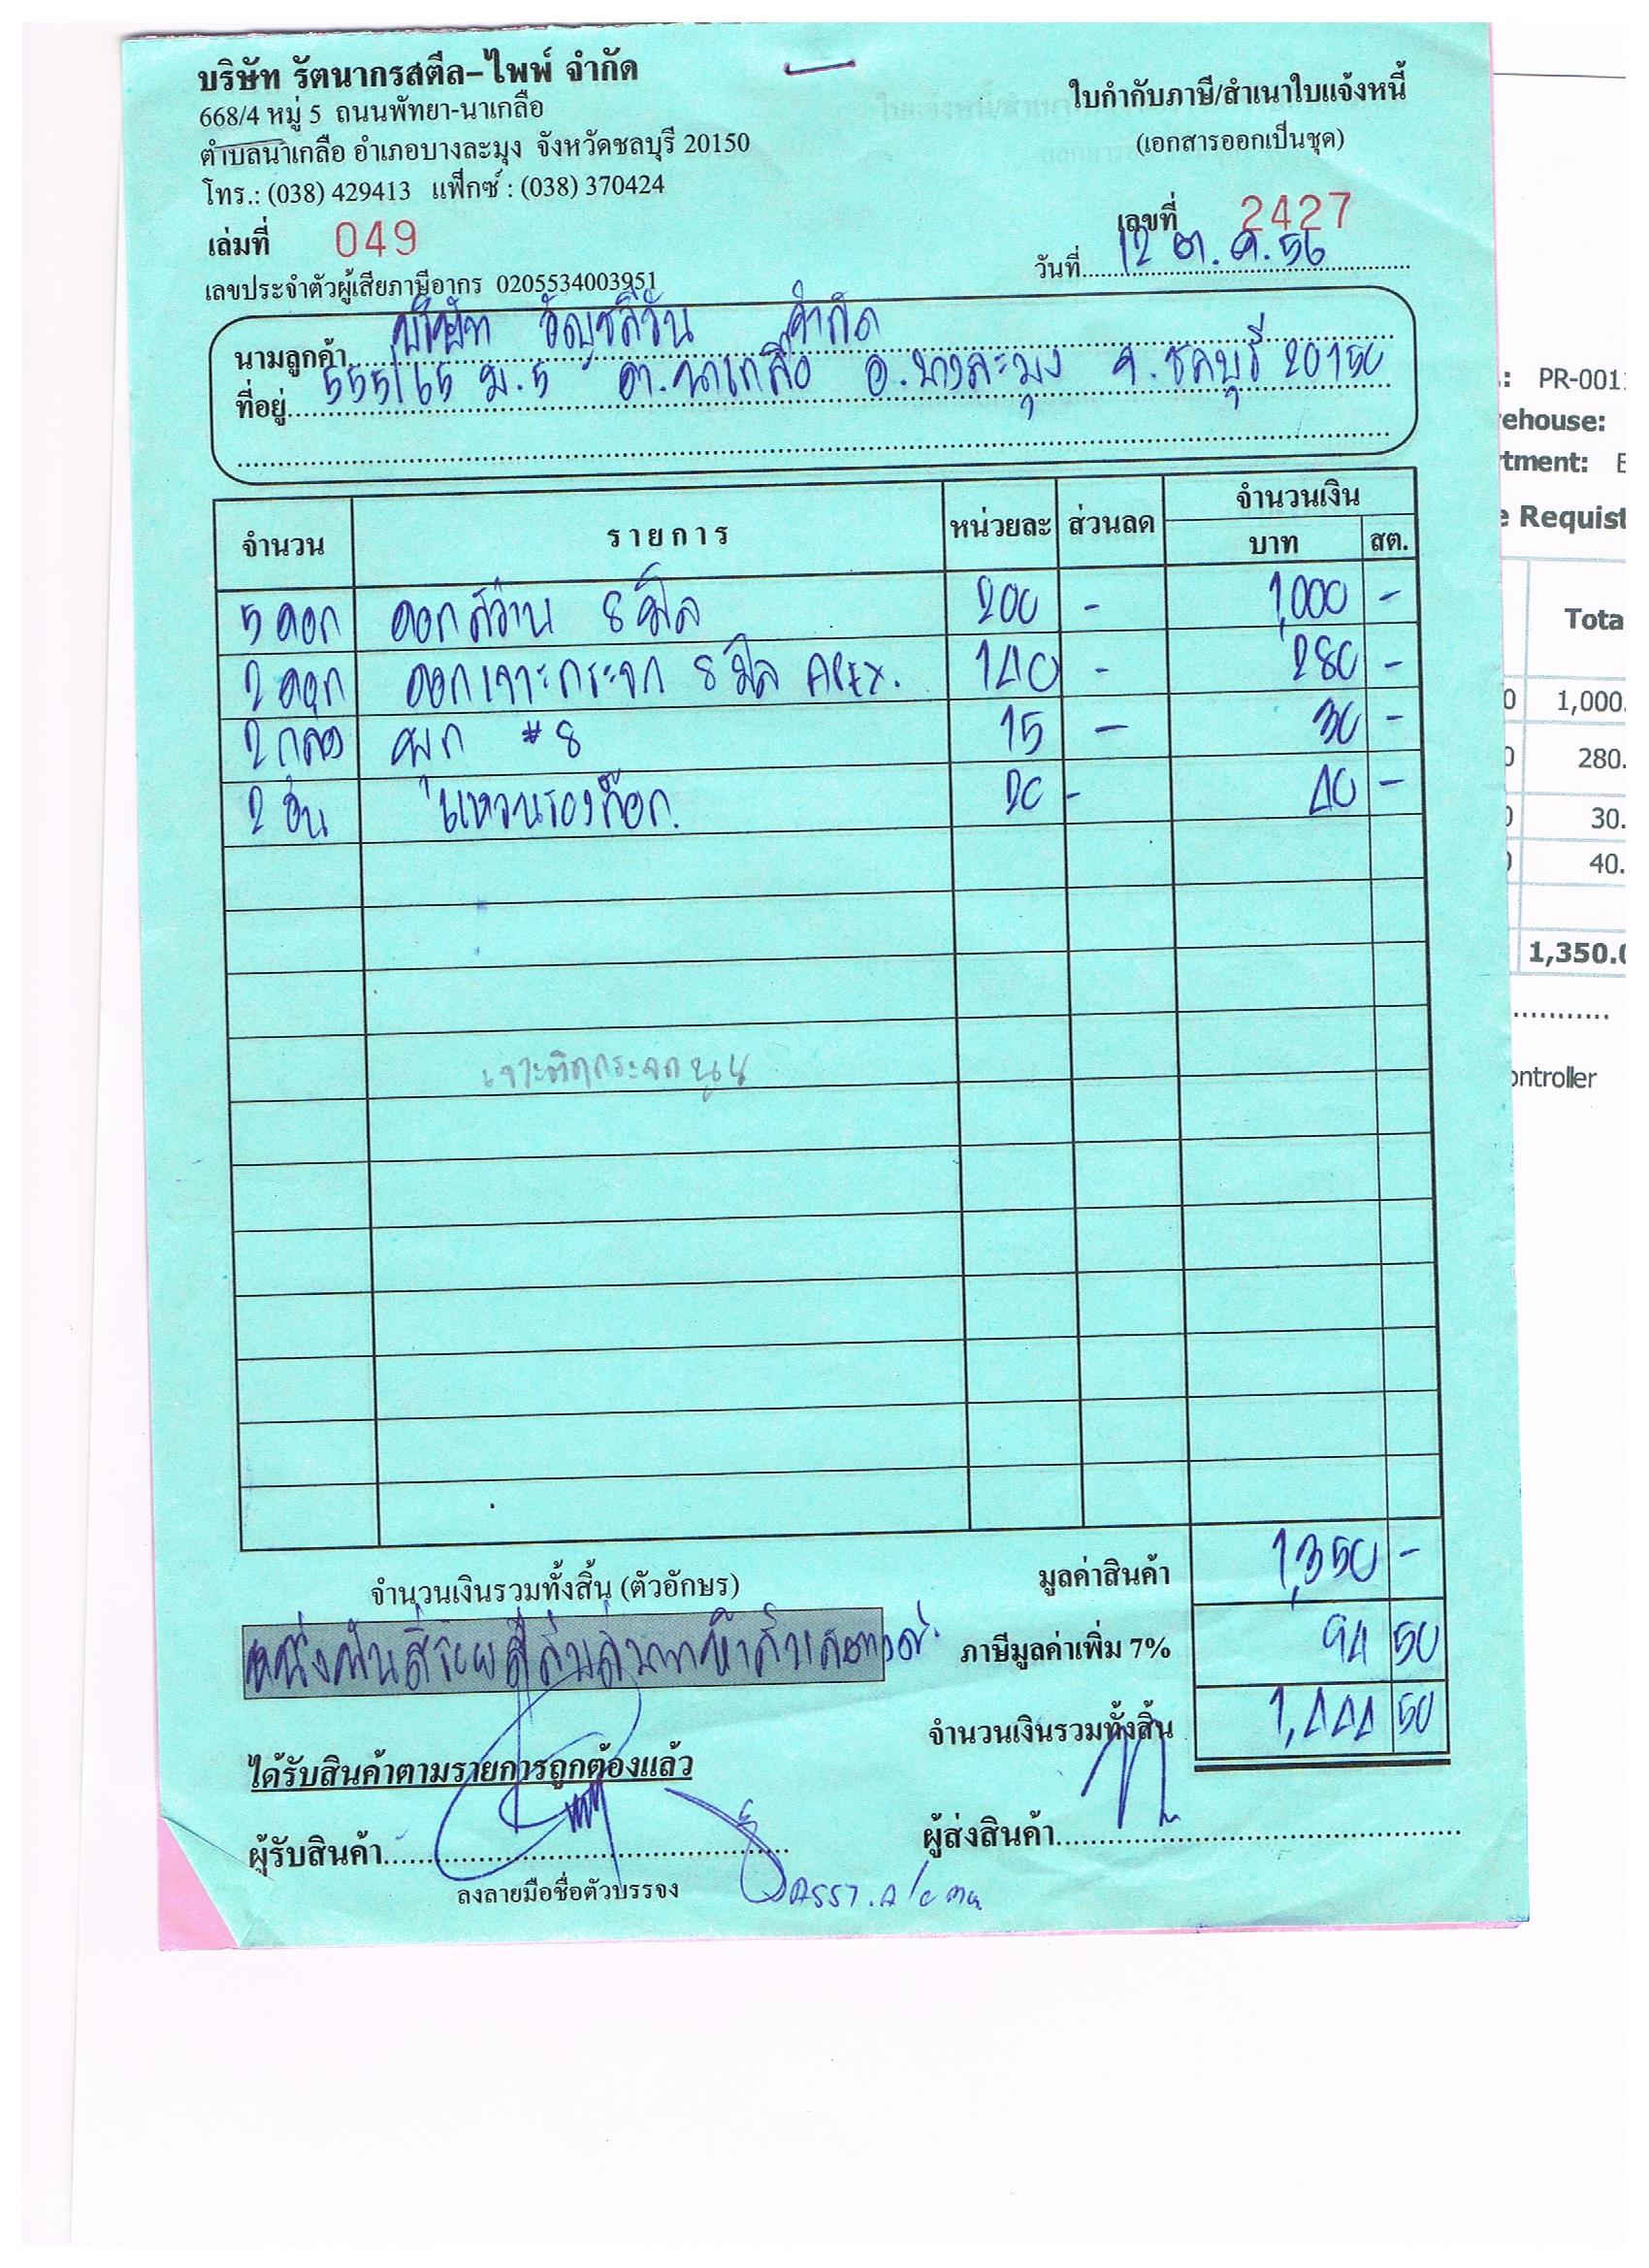 บริษัท รัตนากรสตีล-ไพพ์ จำกัด
668/4 หมู่ 5 ถนนพัทยา-นาเกลือ
ตำบลนาเกลือ อำเภอบางละมุง จังหวัดชลบุรี 20150
โทร.: (038) 429413 แฟ็กซ์ : (038) 370424
ใบกำกับภาษี/สำเนาใบแจ้งหนี้
(เอกสารออกเป็นชุด)
เล่มที่ 049
เลขที่ 2427
วันที่ 12 ต.ค.56
เลขประจำตัวผู้เสียภาษีอากร 0205534003951
นามลูกค้า บริษัท จำกัด
ที่อยู่ 555/65 ม.5 ต.นาเกลือ อ.บางละมุง จ.ชลบุรี 20150
จำนวน รายการ หน่วยละ ส่วนลด จำนวนเงิน
บาท สต.
5 ดอก ดอกสว่าน 8 มิล 200 - 1,000 -
2 ดอก ดอกเจาะกระจก 8 มิล APEX. 140 - 280 -
2 กล่อง พุก #8 15 - 30 -
2 อัน แหวนรองก๊อก. 20 - 40 -
เจาะติดกระจกนูน
จำนวนเงินรวมทั้งสิ้น (ตัวอักษร)
มูลค่าสินค้า 1,350 -
หนึ่งพันสี่ร้อยสี่สิบสี่บาทห้าสิบสตางค์
ภาษีมูลค่าเพิ่ม 7% 94 50
จำนวนเงินรวมทั้งสิ้น 1,444 50
ได้รับสินค้าตามรายการถูกต้องแล้ว
ผู้รับสินค้า
ผู้ส่งสินค้า
ลงลายมือชื่อตัวบรรจง
.: PR-001
rehouse:
tment: E
e Requist
Tota
0 1,000.
0 280.
0 30.
0 40.
1,350.0
ontroller